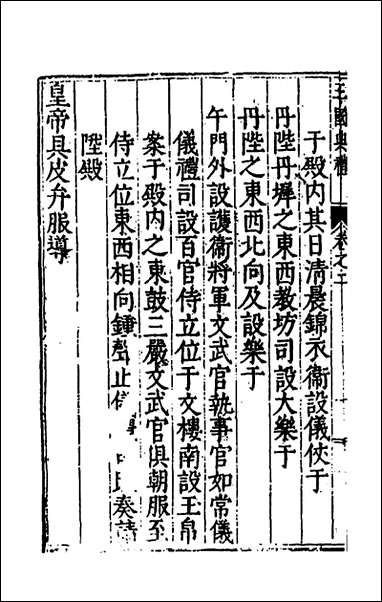 王國典禮 卷之二
于殿内其日清晨錦衣衛設儀仗于
丹陛丹墀之東西教坊司設大樂于
丹陛之東西北向及設樂于
午門外設護衛將軍文武官執事官如常儀
儀禮司設百官侍立位于文樓南設玉帛
案于殿内之東鼓三嚴文武官俱朝服至
侍立位東西相向鍾聲止儀 奏請
陞殿
皇帝具皮弁服導